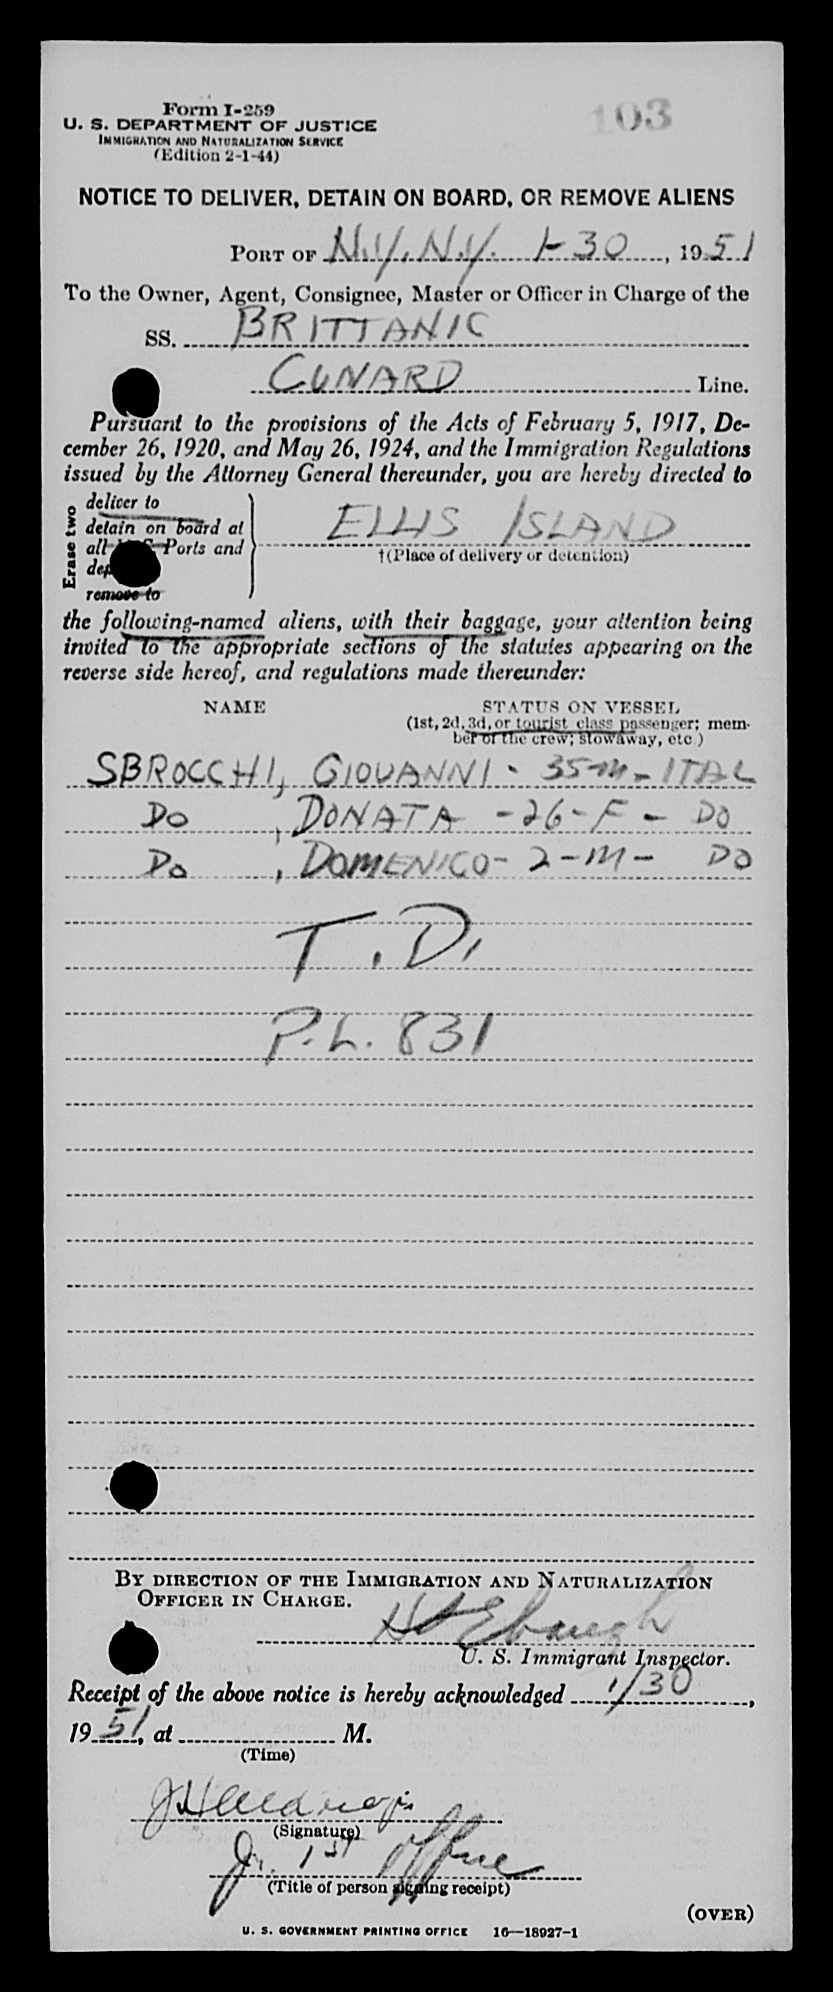 Form I-259
103
U. S. DEPARTMENT OF JUSTICE
IMMIGRATION AND NATURALIZATION SERVICE
(Edition 2-1-44)
NOTICE TO DELIVER, DETAIN ON BOARD, OR REMOVE ALIENS
PORT OF N.Y., N.Y. 1-30, 1951
To the Owner, Agent, Consignee, Master or Officer in Charge of the
SS. BRITTANIC
CUNARD Line.
Pursuant to the provisions of the Acts of February 5, 1917, De-
cember 26, 1920, and May 26, 1924, and the Immigration Regulations
issued by the Attorney General thereunder, you are hereby directed to
Erase two
deliver to
detain on board at
all U.S. Ports and
remove to
ELLIS ISLAND
†(Place of delivery or detention)
the following-named aliens, with their baggage, your attention being
invited to the appropriate sections of the statutes appearing on the
reverse side hereof, and regulations made thereunder:
NAME STATUS ON VESSEL
(1st, 2d, 3d, or tourist class passenger; mem-
ber of the crew; stowaway, etc.)
SBROCCHI, GIOVANNI - 35-M- ITAL
DO , DONATA - 26-F - DO
DO , DOMENICO- 2-M- DO
T.D.
P.L. 831
BY DIRECTION OF THE IMMIGRATION AND NATURALIZATION
OFFICER IN CHARGE.
Ebaugh
U. S. Immigrant Inspector.
Receipt of the above notice is hereby acknowledged 1/30,
1951, at M.
(Time)
(Signature)
Jr. 1st Officer
(Title of person signing receipt)
(OVER)
U. S. GOVERNMENT PRINTING OFFICE 16—18927-1